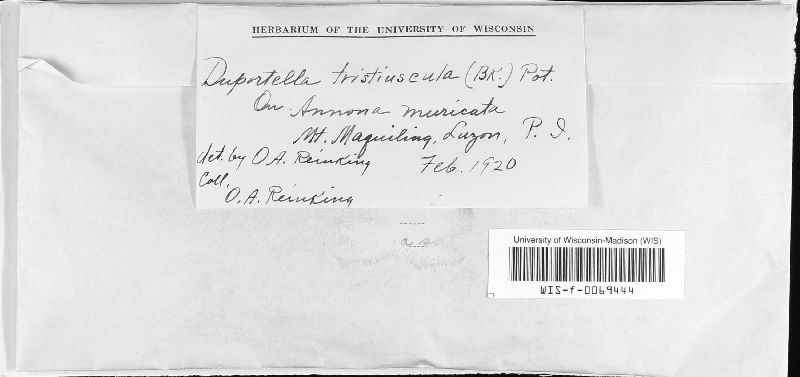 HERBARIUM OF THE UNIVERSITY OF WISCONSIN
Duportella tristiuscula (BK.) Pat.
On Annona muricata
Mt. Maquiling, Luzon, P. I.
det. by O. A. Reinking Feb. 1920
Coll.
O. A. Reinking
University of Wisconsin-Madison (WIS)
WIS-f-0069444